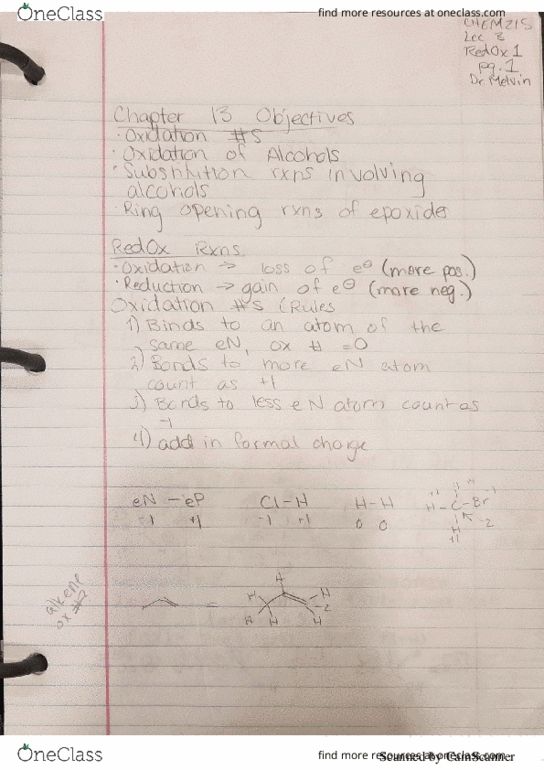 OneClass
find more resources at oneclass.com
CHEM215
Lec 3
RedOx 1
pg. 1
Dr. Melvin
Chapter 13 Objectives
· Oxidation #s
· Oxidation of Alcohols
· Substitution rxns involving
alcohols
· Ring opening rxns of epoxides
RedOx Rxns
· Oxidation → loss of e⊖ (more pos.)
· Reduction → gain of e⊖ (more neg.)
Oxidation #s (Rules
1) Binds to an atom of the
same eN, ox # =0
2) Bonds to more eN atom
count as +1
3) Bonds to less eN atom count as
-1
4) add in formal charge
eN - eP
-1 +1
Cl-H
-1 +1
H-H
0 0
H-C-Br
H
+1
-2
-1
alkene
ox #?
=
H
H
H
-2
H
H
H
OneClass
find more resources at oneclass.com
Scanned by CamScanner